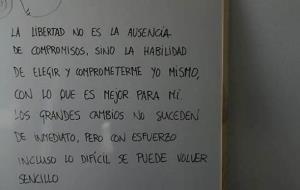 LA LIBERTAD NO ES LA AUSENCIA
DE COMPROMISOS, SINO LA HABILIDAD
DE ELEGIR Y COMPROMETERME YO MISMO,
CON LO QUE ES MEJOR PARA MÍ.
LOS GRANDES CAMBIOS NO SUCEDEN
DE INMEDIATO, PERO CON ESFUERZO
INCLUSO LO DIFÍCIL SE PUEDE VOLVER
SENCILLO